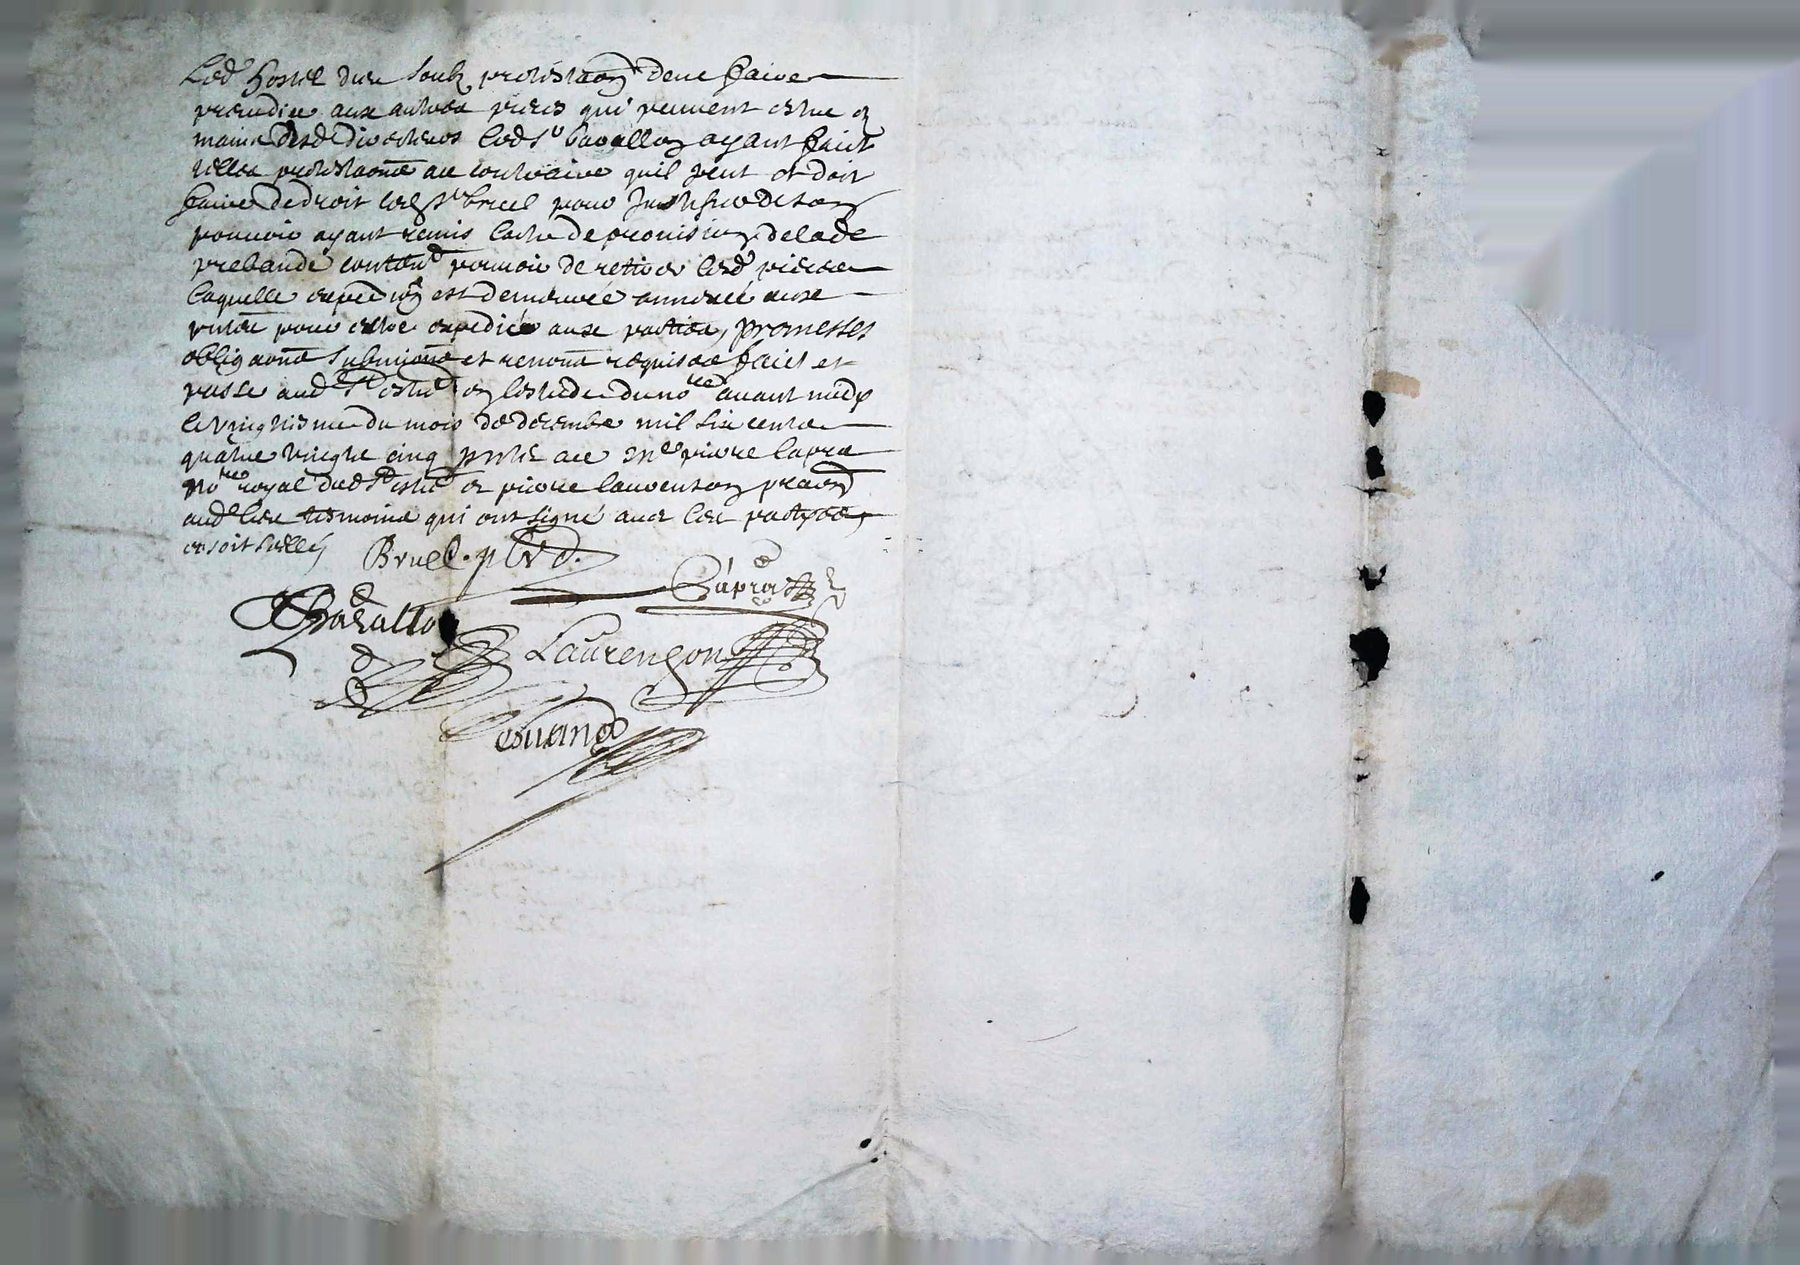 Led hostel dieu soubz protestaon de ne faire
preiudice aux autres pieces qui peuvent estre e
mains desd directeurs led Sr Cavallon ayant faict
telles protestaons au contraire quil peut et doit
faire de droit led Sr bruel pour Justiffier de son
pouvoir ayant remis lacte de provision de lade
prebande conten pouvoir de retirer lesd pieces
laquelle expedion est demeurée annexée aux
pntes pour estre expediée aux parties, promesses
obligaons submisions et renons requises faict et
passé aud St estne en lestude du no re avant midy
le vingtiesme du mois de decembre mil six cents
quatre vingts cinq pnts a ce Me pierre lapra
No re royal dud St estne et pierre laurenson praon
aud lieu tesmoins qui ont signé avec les parties,
et soit seellé
Bruel. pbre.
Lapra
Laurençon